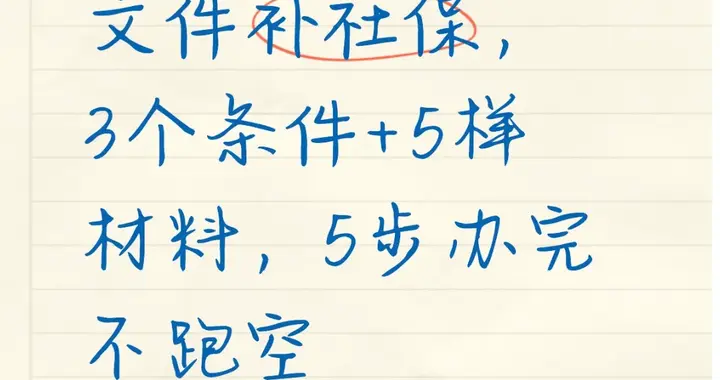 文件补社保，
3个条件+5样
材料，5步办完
不跑空